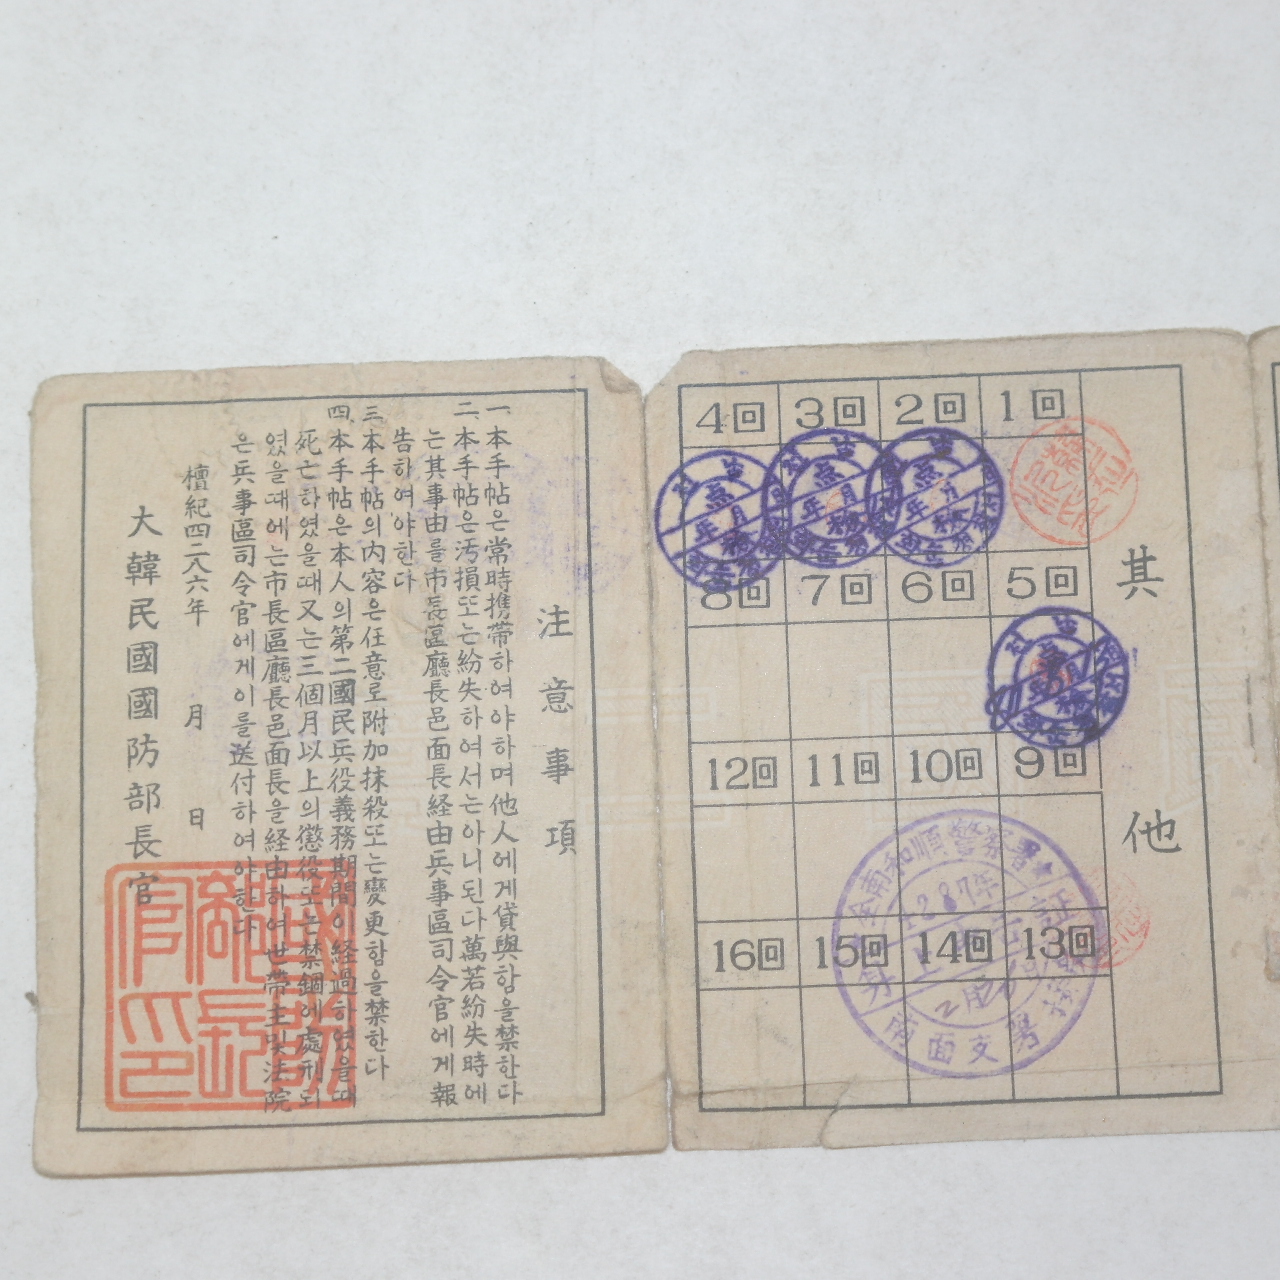 注意事項
一、本手帖은常時携帶하여야하며他人에게貸與함을禁한다
二、本手帖은汚損또는紛失하여서는아니된다萬若紛失時에
는其事由를市長區廳長邑面長経由兵事區司令官에게報
告하여야한다
三、本手帖의內容은任意로附加抹殺또는變更함을禁한다
四、本手帖은本人의第二國民兵役義務期間이経過하였을때
死亡하였을때又는三個月以上의懲役또는禁錮에處刑되
였을때에는市長區廳長邑面長을経由하여世帶主및法院
은兵事區司令官에게이를送付하여야한다
檀紀四二八六年 月 日
大韓民國國防部長官
其他
1回 2回 3回 4回
5回 6回 7回 8回
9回 10回 11回 12回
13回 14回 15回 16回
全南和順警察署
南面支署